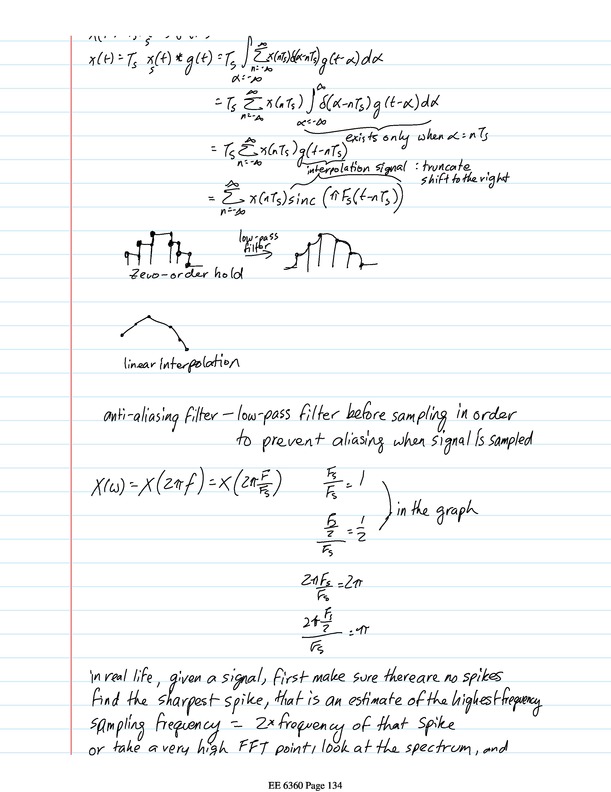 x(t) = T_s x_s(t) * g(t) = T_s ∫_{α=-∞}^{∞} Σ_{n=-∞}^{∞} x(nT_s)δ(α-nT_s) g(t-α)dα
= T_s Σ_{n=-∞}^{∞} x(nT_s) ∫_{α=-∞}^{∞} δ(α-nT_s) g(t-α)dα
exists only when α=nT_s
= T_s Σ_{n=-∞}^{∞} x(nT_s) g(t-nT_s)
interpolation signal : truncate
shift to the right
= Σ_{n=-∞}^{∞} x(nT_s) sinc (πF_s(t-nT_s))
low-pass
filter
Zero-order hold
linear Interpolation
anti-aliasing filter – low-pass filter before sampling in order
to prevent aliasing when signal is sampled
X(ω) = X(2πf) = X(2π F/F_s)
F_s/F_s = 1
(F_s/2)/F_s = 1/2
in the graph
2πF_s/F_s = 2π
(2π F_s/2)/F_s = π
In real life, given a signal, first make sure there are no spikes
find the sharpest spike, that is an estimate of the highest frequency
sampling frequency = 2* frequency of that spike
or take a very high FFT point, look at the spectrum, and
EE 6360 Page 134